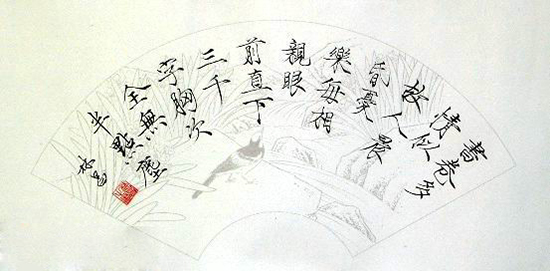 書卷多
情似
故人晨
昏憂
樂每相
親眼
前直下
三千
字胸次
全無
半點塵